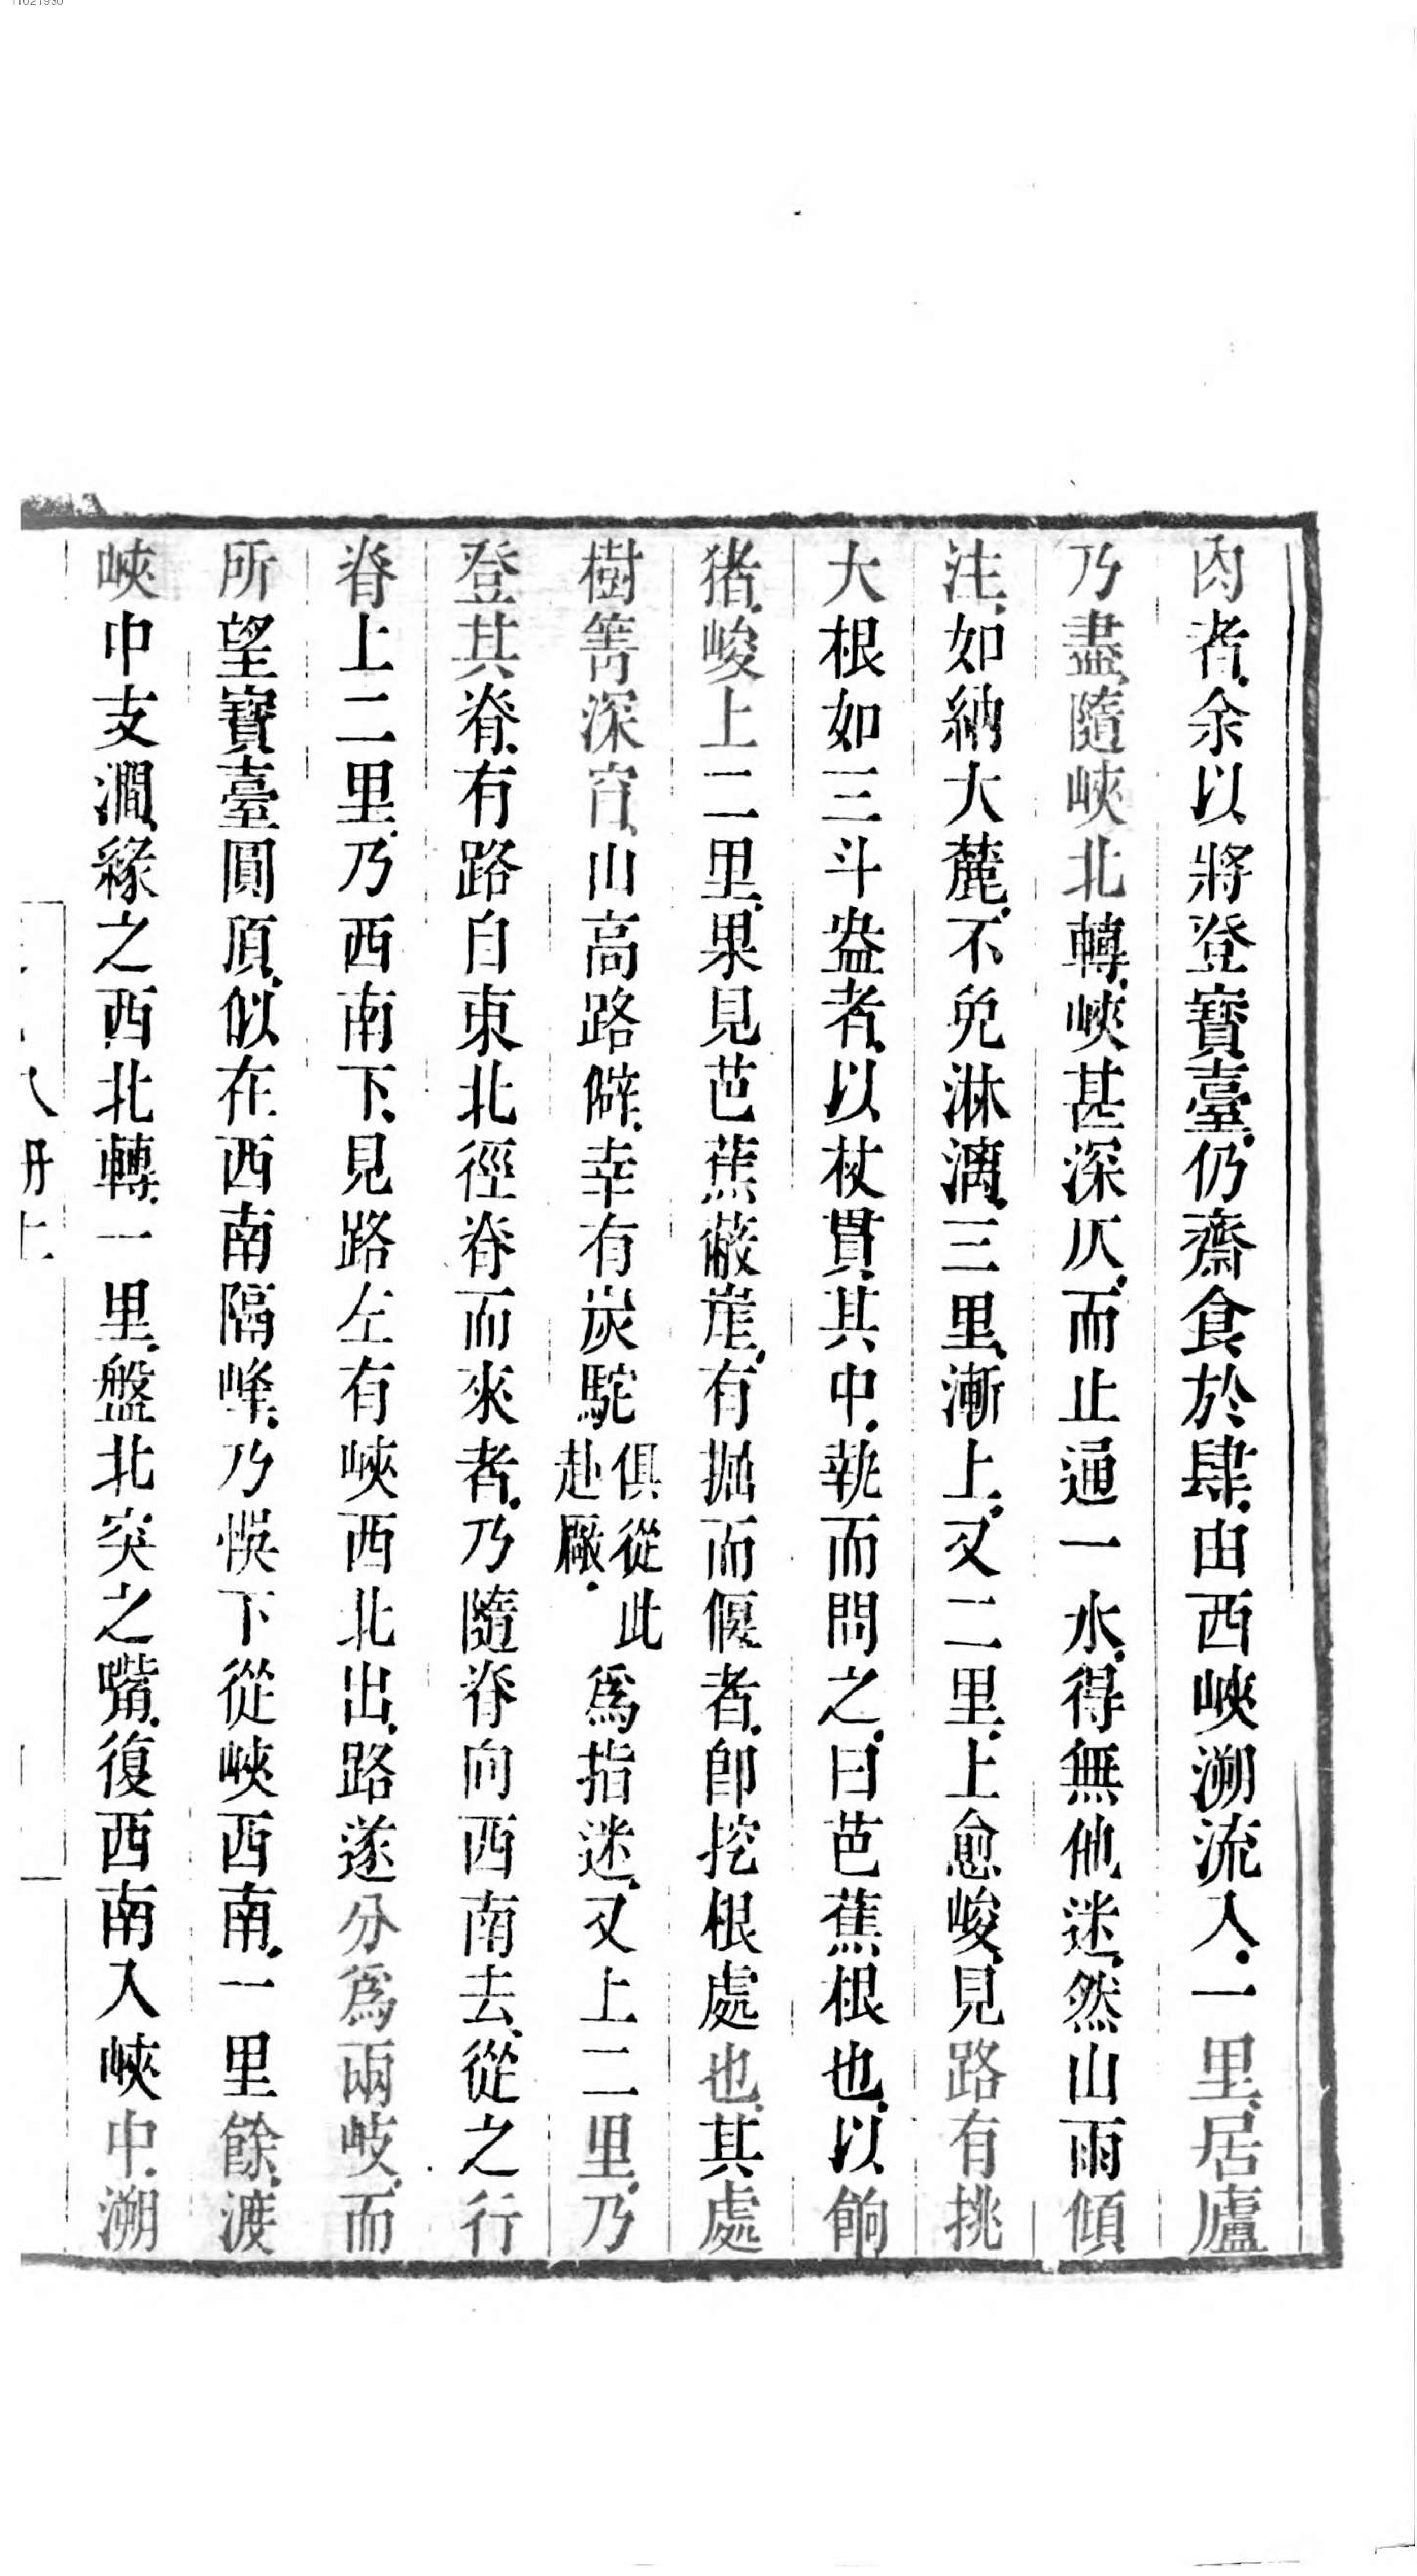 肉者余以將登寶臺仍齋食於肆由西峽溯流入一里居廬
乃盡隨峽北轉峽甚深仄而止通一水得無他迷然山雨傾
注如納大麓不免淋漓三里漸上又二里上愈峻見路有挑
大根如三斗盎者以杖貫其中執而問之曰芭蕉根也以餉
猪峻上二里果見芭蕉蔽崖有掘而偃者卽挖根處也其處
樹箐深窅山高路僻幸有炭駝俱從此赴廠爲指迷又上二里乃
登其脊有路自東北徑脊而來者乃隨脊向西南去從之行
脊上二里乃西南下見路左有峽西北出路遂分爲兩岐而
所望寶臺圓頂似在西南隔峰乃悞下從峽西南一里餘渡
峽中支澗緣之西北轉一里盤北突之嘴復西南入峽中溯
八册上
11021930